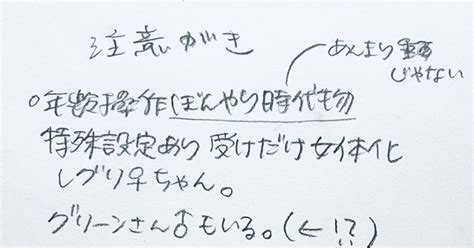 注意がき
あんまり重要
じゃない
○年齢操作ぼんやり時代物
特殊設定あり 受けだけ女体化
レグリ♀ちゃん。
グリーンさん♂もいる。(←!?)